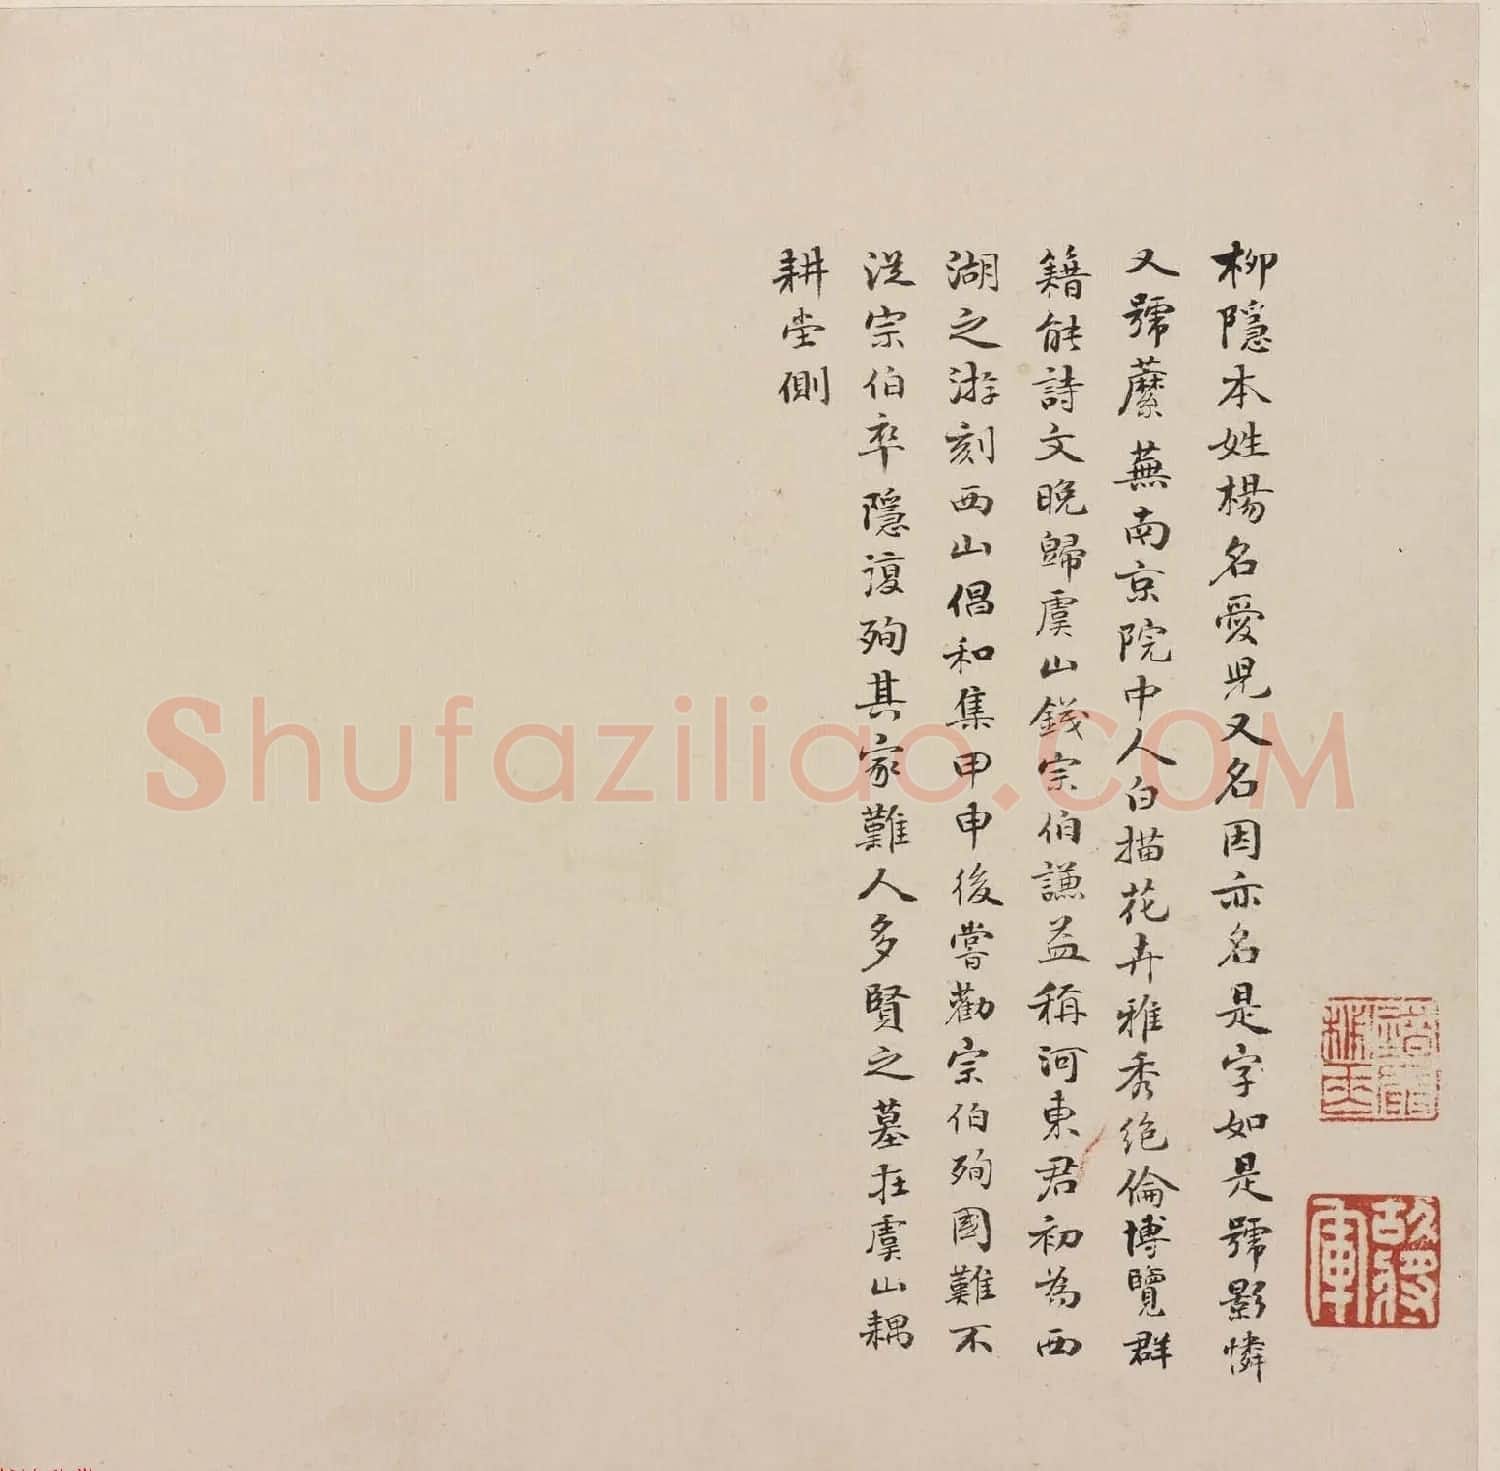 柳隱本姓楊名愛児又名因亦名是字如是號影憐
又號蘼蕪南京院中人白描花卉雅秀绝倫博覽群
籍能詩文晚歸虞山錢宗伯謙益稱河東君初為西
湖之游刻西山倡和集甲申後嘗勸宗伯殉國難不
從宗伯卒隱復殉其家難人多賢之墓在虞山耦
耕堂側
Shufaziliao.COM